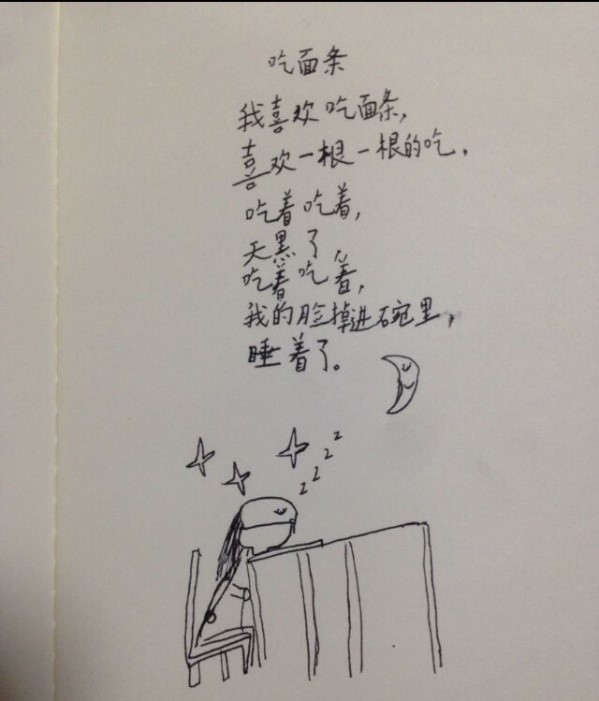 吃面条
我喜欢吃面条，
喜欢一根一根的吃，
吃着吃着，
天黑了，
吃着吃着，
我的脸掉进碗里，
睡着了。
z z z z